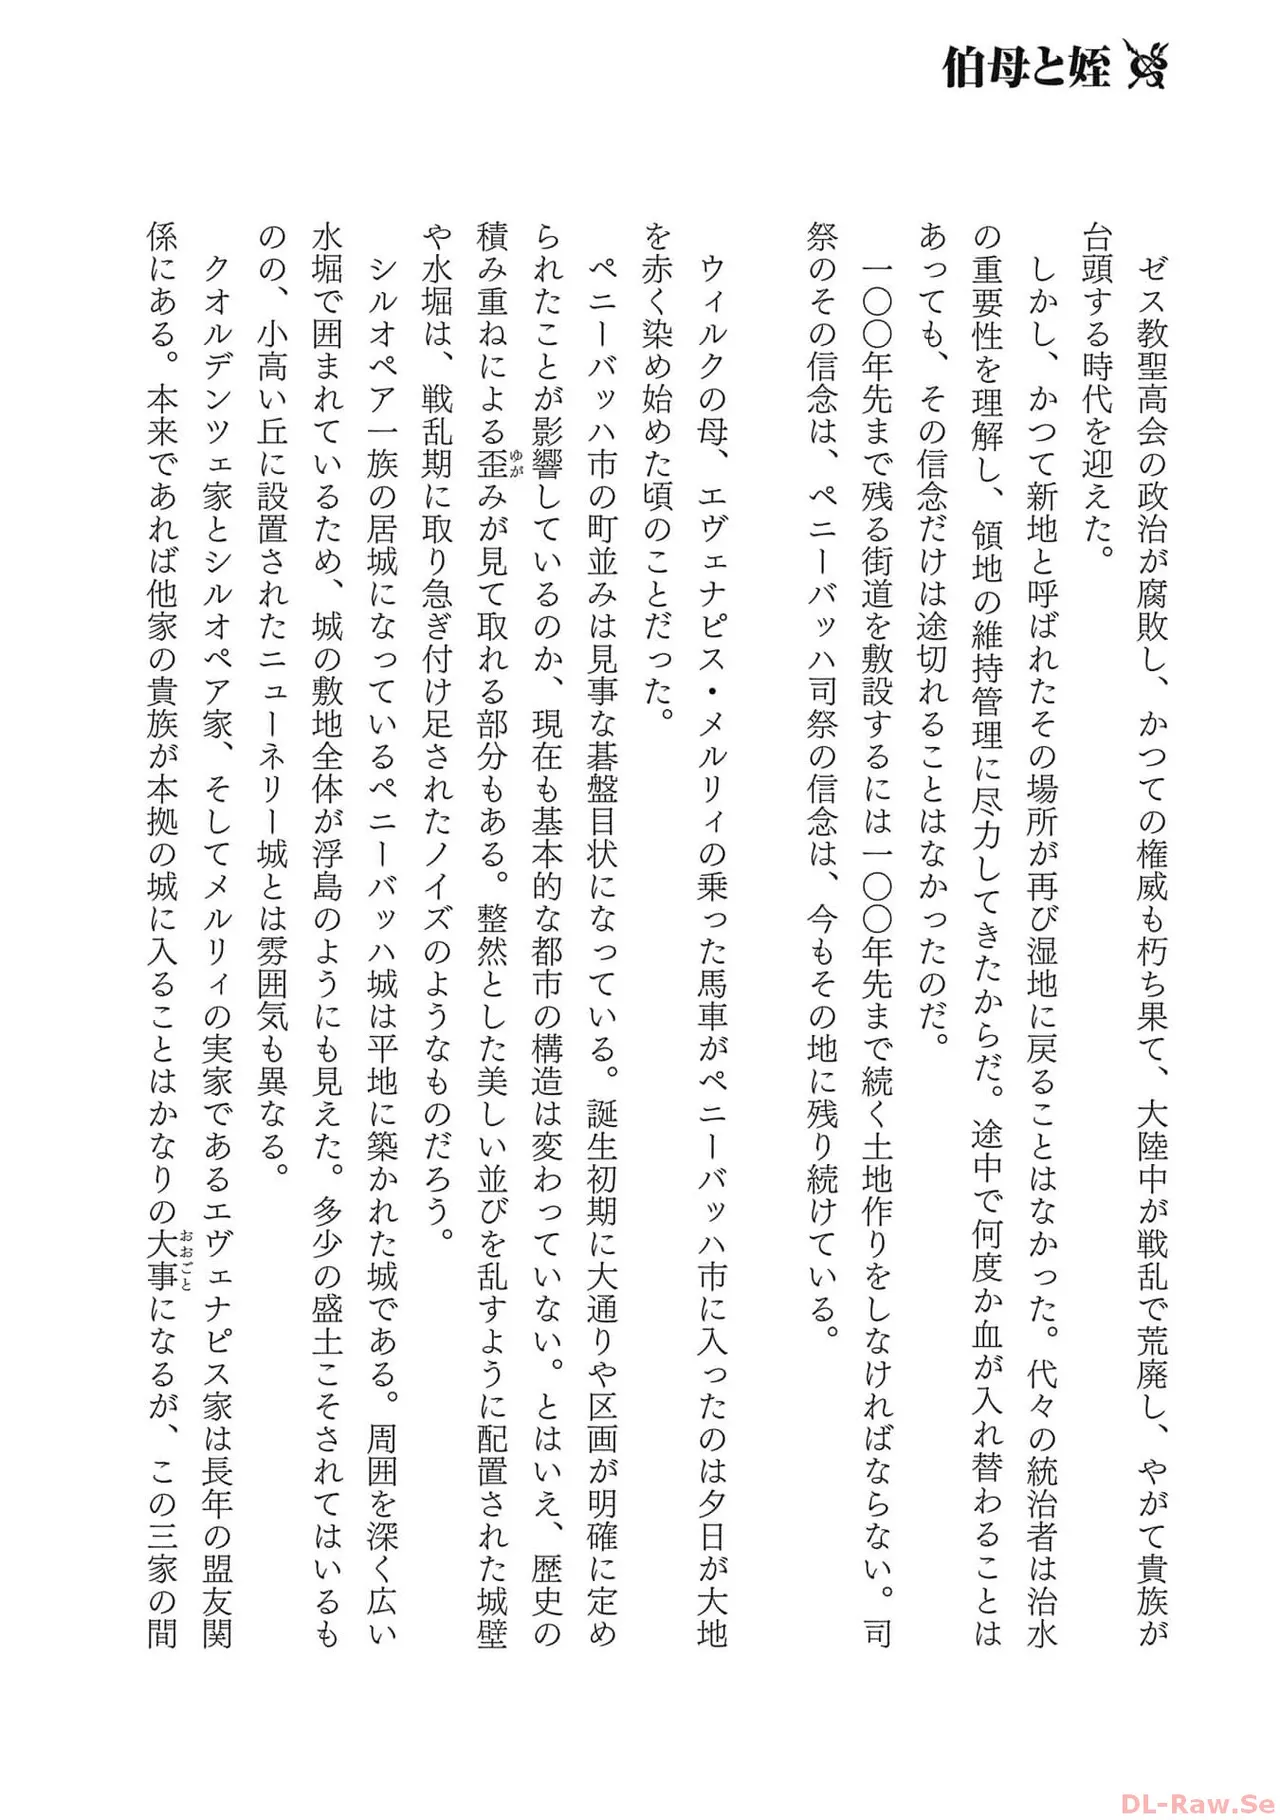 伯母と姪
ゼス教聖高会の政治が腐敗し、かつての権威も朽ち果て、大陸中が戦乱で荒廃し、やがて貴族が
台頭する時代を迎えた。
しかし、かつて新地と呼ばれたその場所が再び湿地に戻ることはなかった。代々の統治者は治水
の重要性を理解し、領地の維持管理に尽力してきたからだ。途中で何度か血が入れ替わることは
あっても、その信念だけは途切れることはなかったのだ。
一〇〇年先まで残る街道を敷設するには一〇〇年先まで続く土地作りをしなければならない。司
祭のその信念は、ペニーバッハ司祭の信念は、今もその地に残り続けている。
ウィルクの母、エヴェナピス・メルリィの乗った馬車がペニーバッハ市に入ったのは夕日が大地
を赤く染め始めた頃のことだった。
ペニーバッハ市の町並みは見事な碁盤目状になっている。誕生初期に大通りや区画が明確に定め
られたことが影響しているのか、現在も基本的な都市の構造は変わっていない。とはいえ、歴史の
積み重ねによる歪みが見て取れる部分もある。整然とした美しい並びを乱すように配置された城壁
ゆが
や水堀は、戦乱期に取り急ぎ付け足されたノイズのようなものだろう。
シルオペア一族の居城になっているペニーバッハ城は平地に築かれた城である。周囲を深く広い
水堀で囲まれているため、城の敷地全体が浮島のようにも見えた。多少の盛土こそされてはいるも
のの、小高い丘に設置されたニューネリー城とは雰囲気も異なる。
クオルデンツェ家とシルオペア家、そしてメルリィの実家であるエヴェナピス家は長年の盟友関
係にある。本来であれば他家の貴族が本拠の城に入ることはかなりの大事になるが、この三家の間
おおごと
DL-Raw.Se